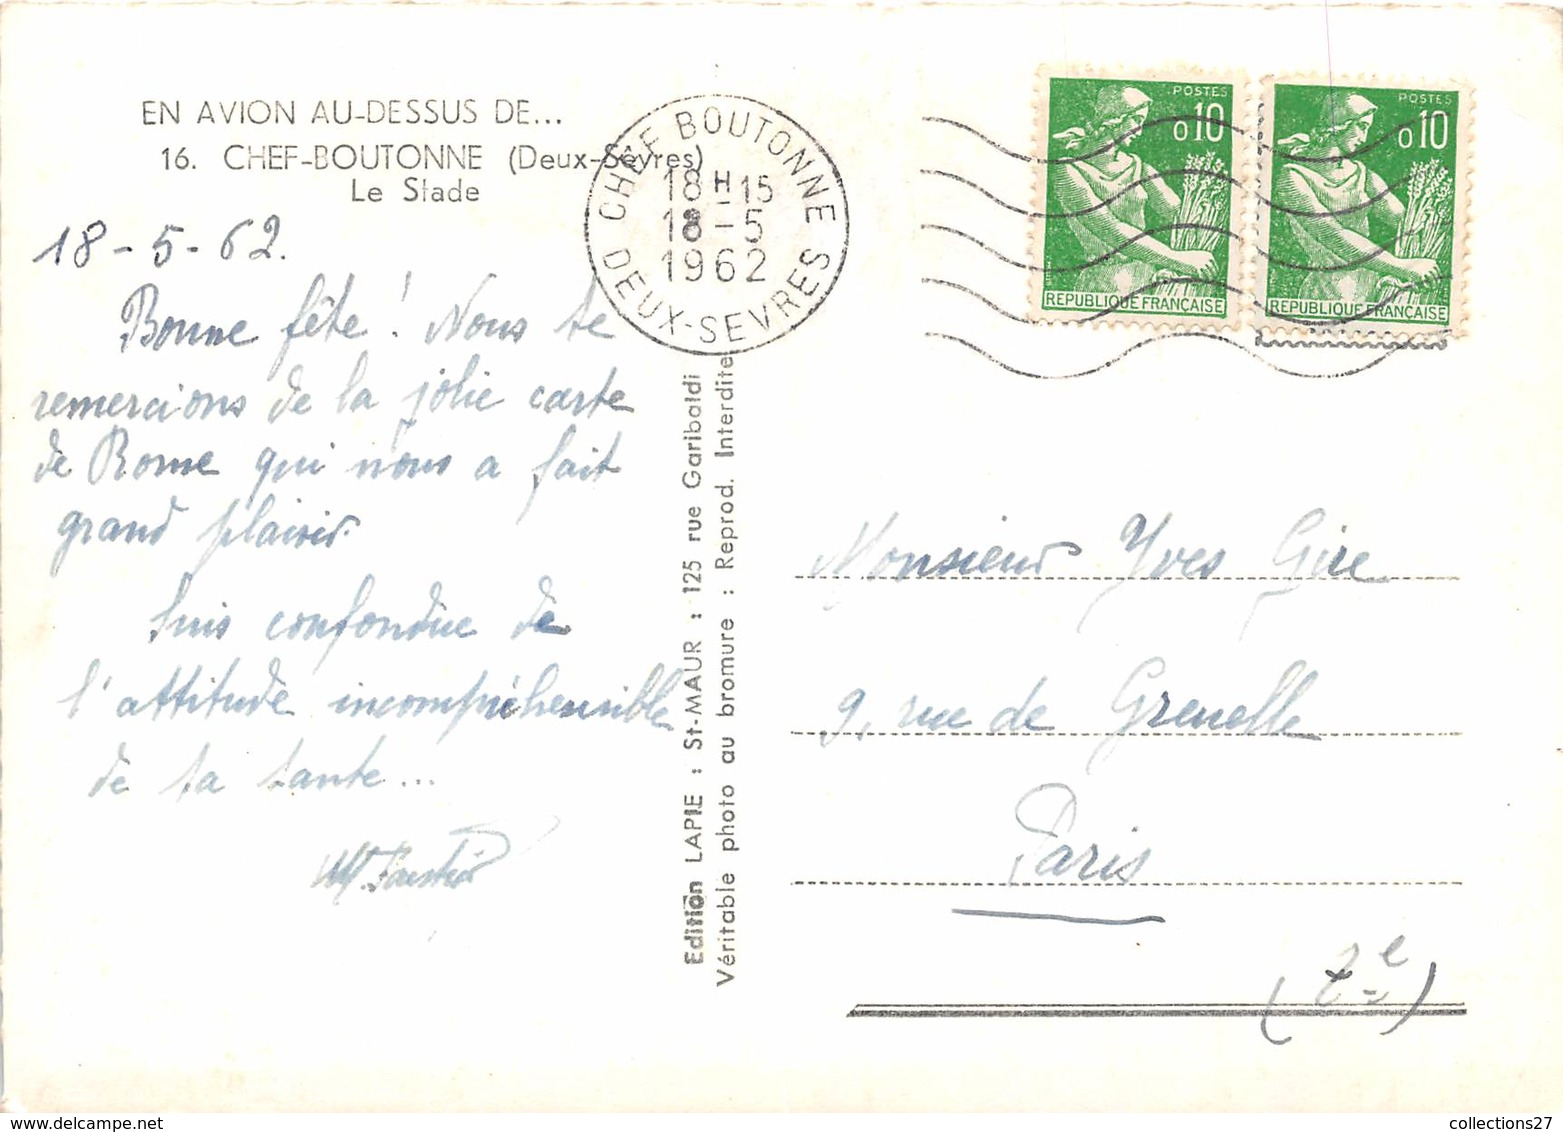 EN AVION AU-DESSUS DE...
16. CHEF-BOUTONNE (Deux-Sèvres)
Le Stade
18-5-62.
Bonne fête! Nous te
remercions de la jolie carte
de Rome qui nous a fait
grand plaisir.
Suis confondue de
l'attitude incompréhensible
de ta tante...
CHEF BOUTONNE
18H15
18-5
1962
DEUX-SEVRES
POSTES
0,10
REPUBLIQUE FRANÇAISE
POSTES
0,10
REPUBLIQUE FRANÇAISE
Edition LAPIE : St-MAUR : 125 rue Garibaldi
Véritable photo au bromure : Reprod. Interdite
Monsieur Yves Gire
9, rue de Grenelle
Paris
(7e)
collections27